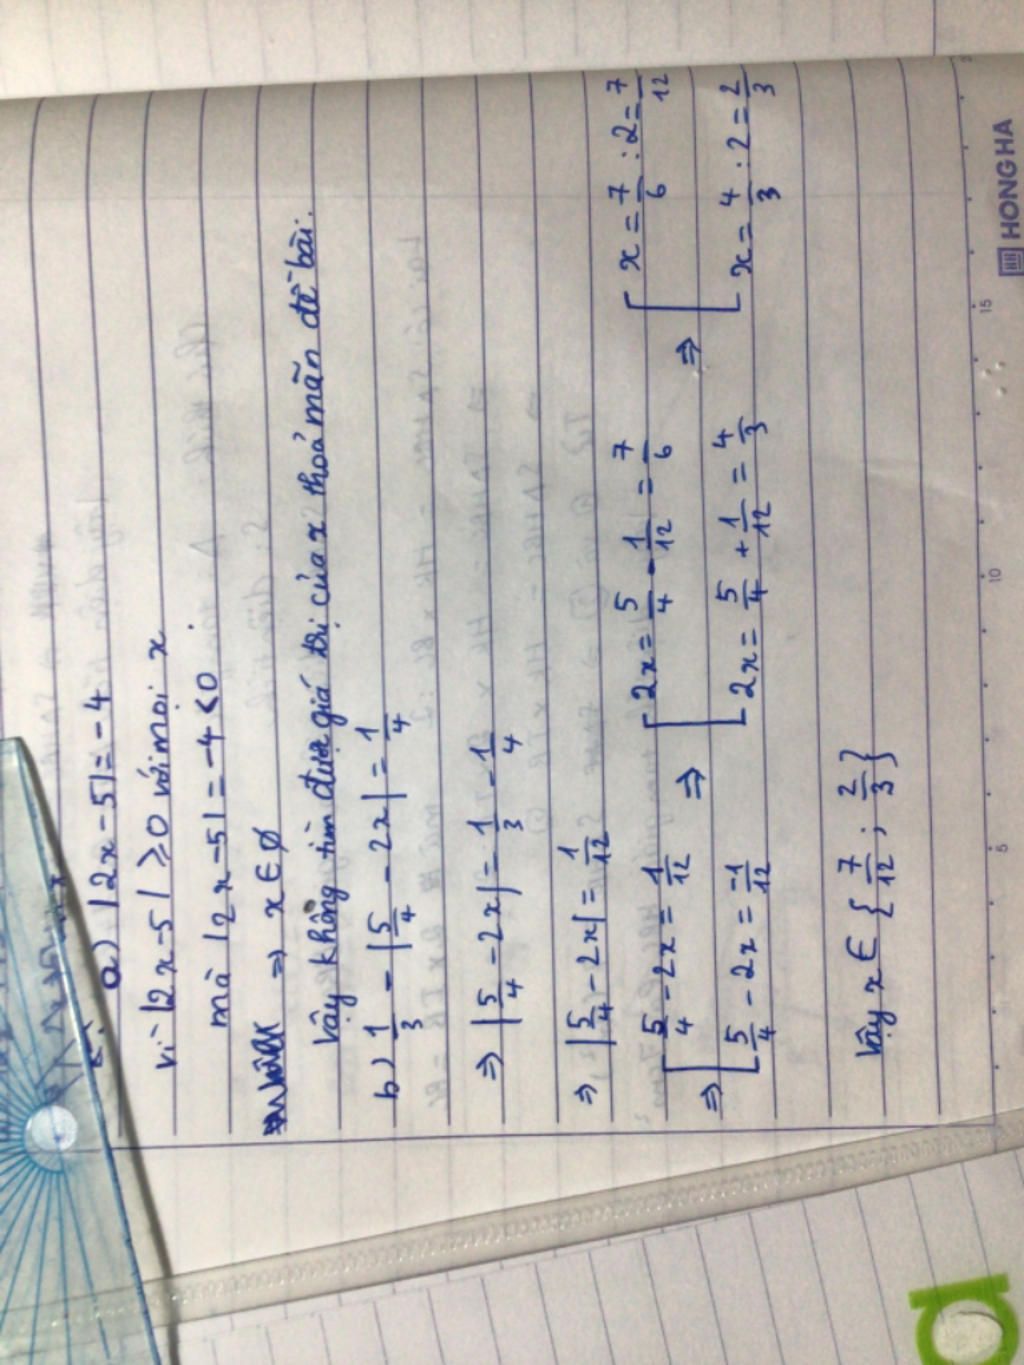 a) |2x - 5| = -4
vì |2x - 5| ≥ 0 với mọi x
mà |2x - 5| = -4 < 0
⇒ x ∈ ∅
Vậy không tìm được giá trị của x thoả mãn đề bài.
b) 1/3 - |5/4 - 2x| = 1/4
⇒ |5/4 - 2x| = 1/3 - 1/4
⇒ |5/4 - 2x| = 1/12
⇒ [ 5/4 - 2x = 1/12 ⇒ [ 2x = 5/4 - 1/12 = 7/6 ⇒ [ x = 7/6 : 2 = 7/12
[ 5/4 - 2x = -1/12 [ 2x = 5/4 + 1/12 = 4/3 [ x = 4/3 : 2 = 2/3
Vậy x ∈ { 7/12 ; 2/3 }
5 10 15
HONG HA